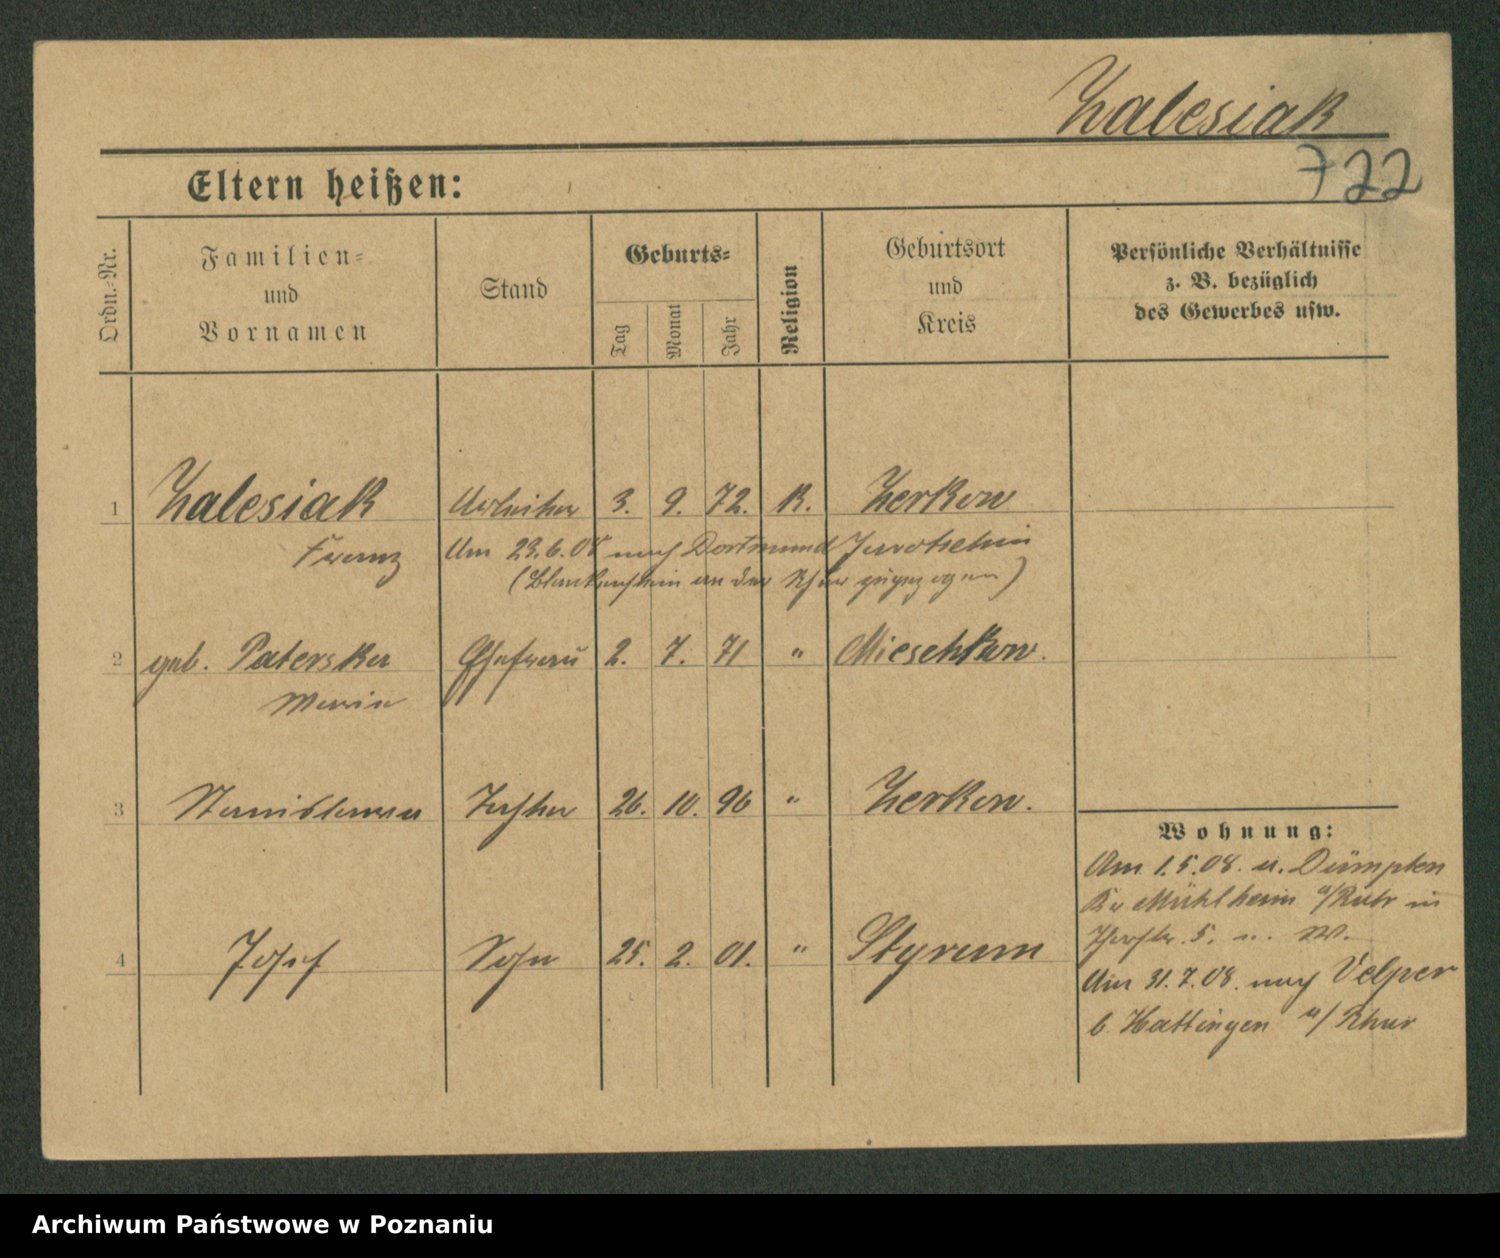 Zalesiak
722
Eltern heißen:
Ordn.-Nr.
Familien-
und
Vornamen
Stand
Geburts-
Tag
Monat
Jahr
Religion
Geburtsort
und
Kreis
Persönliche Verhältnisse
z. B. bezüglich
des Gewerbes usw.
1 Zalesiak Arbeiter 3. 9. 72. K. Zerkow
Franz Am 23.6.08 nach Dortmund Jarotschin
(Blankenstein an der Rhur zugezogen)
2 geb. Paterska Ehefrau 2. 7. 71 " Mieschkow.
Maria
3 Stanislawa Tochter 26. 10. 96 " Zerkow.
4 Josef Sohn 25. 2. 01. " Styrum
Wohnung:
Am 1.5.08. n. Dümpten
Kr Mühlheim a/Ruhr in
5. n. W.
Am 31.7.08. nach Velper
b. Hattingen a/Rhur
Archiwum Państwowe w Poznaniu